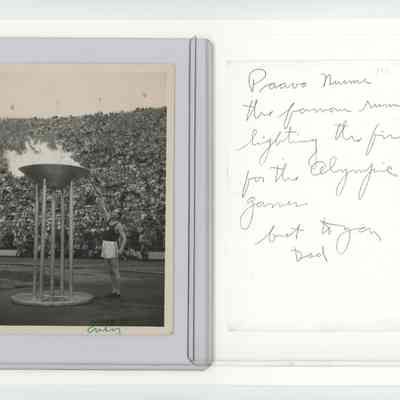 Paavo Nurmi
the famous runn
lighting the fire
for the Olympic
games
best to you
Dad